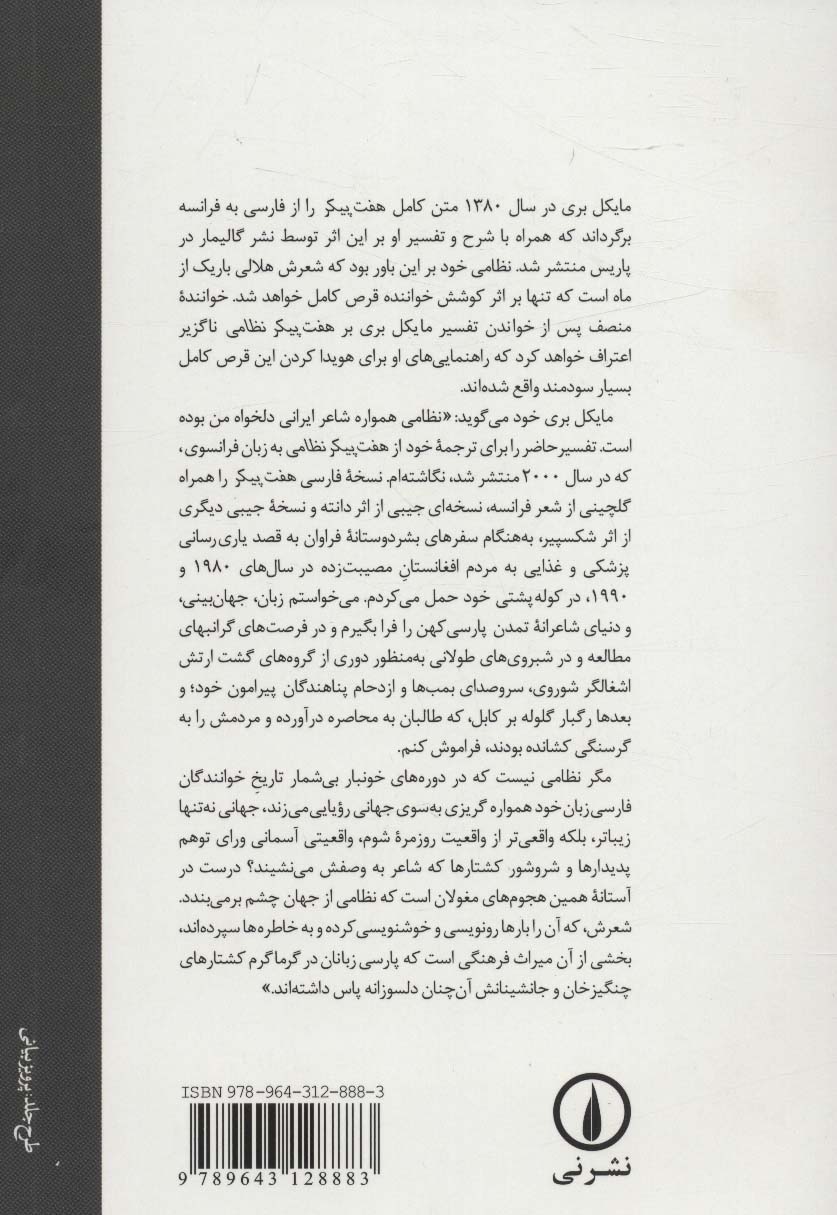 مایکل بری در سال ۱۳۸۰ متن کامل هفت‌پیکر را از فارسی به فرانسه
برگرداند که همراه با شرح و تفسیر او بر این اثر توسط نشر گالیمار در
پاریس منتشر شد. نظامی خود بر این باور بود که شعرش هلالی باریک از
ماه است که تنها بر اثر کوشش خواننده قرص کامل خواهد شد. خوانندهٔ
منصف پس از خواندن تفسیر مایکل بری بر هفت‌پیکر نظامی ناگزیر
اعتراف خواهد کرد که راهنمایی‌های او برای هویدا کردن این قرص کامل
بسیار سودمند واقع شده‌اند.
مایکل بری خود می‌گوید: «نظامی همواره شاعر ایرانی دلخواه من بوده
است. تفسیر حاضر را برای ترجمهٔ خود از هفت‌پیکر نظامی به زبان فرانسوی،
که در سال ۲۰۰۰ منتشر شد، نگاشته‌ام. نسخهٔ فارسی هفت‌پیکر را همراه
گلچینی از شعر فرانسه، نسخه‌ای جیبی از اثر دانته و نسخهٔ جیبی دیگری
از اثر شکسپیر، به‌هنگام سفرهای بشردوستانهٔ فراوان به قصد یاری‌رسانی
پزشکی و غذایی به مردم افغانستانِ مصیبت‌زده در سال‌های ۱۹۸۰ و
۱۹۹۰، در کوله‌پشتی خود حمل می‌کردم. می‌خواستم زبان، جهان‌بینی،
و دنیای شاعرانهٔ تمدن پارسی کهن را فرا بگیرم و در فرصت‌های گرانبهای
مطالعه و در شبروی‌های طولانی به‌منظور دوری از گروه‌های گشت ارتش
اشغالگر شوروی، سروصدای بمب‌ها و ازدحام پناهندگان پیرامون خود؛ و
بعدها رگبار گلوله بر کابل، که طالبان به محاصره درآورده و مردمش را به
گرسنگی کشانده بودند، فراموش کنم.
مگر نظامی نیست که در دوره‌های خونبار بی‌شمار تاریخِ خوانندگان
فارسی‌زبان خود همواره گریزی به‌سوی جهانی رؤیایی می‌زند، جهانی نه‌تنها
زیباتر، بلکه واقعی‌تر از واقعیت روزمرهٔ شوم، واقعیتی آسمانی ورای توهم
پدیدارها و شروشور کشتارها که شاعر به وصفش می‌نشیند؟ درست در
آستانهٔ همین هجوم‌های مغولان است که نظامی از جهان چشم برمی‌بندد.
شعرش، که آن را بارها رونویسی و خوشنویسی کرده و به خاطره‌ها سپرده‌اند،
بخشی از آن میراث فرهنگی است که پارسی زبانان در گرماگرم کشتارهای
چنگیزخان و جانشینانش آن‌چنان دلسوزانه پاس داشته‌اند.»
ISBN 978-964-312-888-3
9 789643 128883
نشر نی
طرح جلد: پرویز بیانی